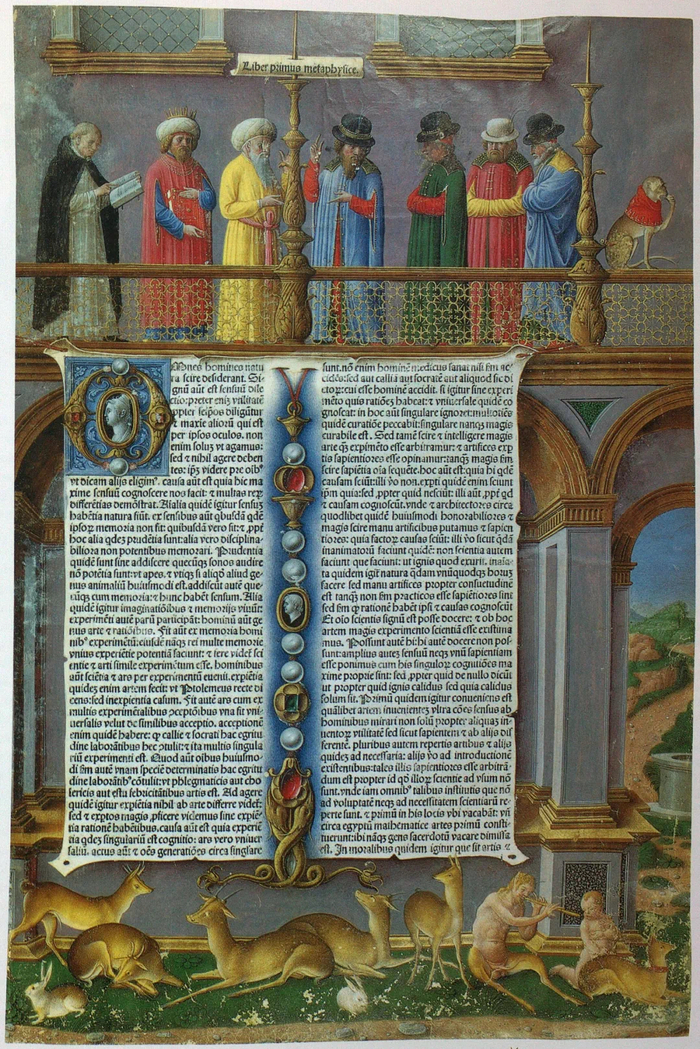 Liber primus metaphysice.
Mnes homines natu
ra scire desiderant. Si
gnũ aũt est sensuũ dile
ctio: preter eniз vtilitatẽ
propter seipos diligũtur
et maxie aliorũ qui est
per ipsos oculos. non
enim soluз vt agamus:
sed et nihil agere deben
tes: ip̃s videre pre oĩb⁹
vt dicam alijs eligim⁹. causa aũt est quia hic ma
xime sensuũ cognoscere nos facit: et multas reꝝ
differẽtias demõstrat. Aĩalia quidẽ igitur sensuз
habẽtia natura fiũt. ex sensibus aũt quibusdã qdẽ
ipsoꝝ memoria non fit: quibusdã vero fit: et ꝓpt̃
hoc alia qdeз prudẽtia sunt: alia vero disciplina-
biliora non potentibus memorari. Prudentia
quidẽ sunt sine addiscere quecũqз sonos audire
nõ potẽtia sunt: vt apes. et vtiqз si aliqd aliud ge-
nus animaliũ huiusmodi est. addiscũt aũt que-
cũqз cum memoria: et hunc habẽt sensum. Alia
quidẽ igitur imaginatiõibus et memorijs viuũt:
experimẽti aũt parũ participãt: hominũ aũt ge
nus arte et ratiõibus. Fit aũt ex memoria homi
nib⁹ experimẽtũ: eiusdẽ nãqз rei multe memorie
vnius experiẽtie potẽtiã faciunt: et fere videt̃ sci
entie et arti simile experimẽtum esse. hominibus
aũt sciẽtia et ars per experimẽtũ euenit. experiẽtia
quidez enim artem fecit: vt Ptolemeus recte di
cens: sed inexpientia casum. Fit aũt ars cum ex
multis experimẽtalibus acceptiõibus vna fit vni-
uersalis velut de similibus acceptio. acceptionẽ
enim quidẽ habere: ꝙ callie et socrati hac egritu
dine laborãtibus hec ꝯtulit: et ita multis singula
riũ experimenti est. Quod aũt oĩbus huiusmo-
di fm aũt vnam speciẽ determinatis hac egritu
dine laborãtib⁹ cõtulit: vt phlegmaticis aut cho
lericis aut estu febricitãtibus artis est. Ad agere
quidẽ igitur expiẽtia nihil ab arte differre videt̃:
sed et exptos magis ꝓficere videmus sine expiẽ-
tia rationẽ habẽtibus. causa aũt est quia experiẽ
tia qdeз singulariũ est cognitio: ars vero vniuer
saliũ. actus aũt et oẽs generatiões circa singlare
sunt. nõ enim hominẽ medicus sanat nisi fm ac
cidẽs: sed aut calliã aut socratẽ aut aliquod sic di
ctoꝝ: cui esse hominẽ accidit. si igitur sine experi
mẽto quis rationẽ habeat: et vniuersale quidẽ co
gnoscat: in hoc aũt singulare ignoret: multotiẽs
quidẽ curatiõe peccabit: singulare nanqз magis
curabile est. Sed tamẽ scire et intelligere magis
arte ꝙ expimẽto esse arbitramur: et artifices exp
tis sapientiores esse opinamur: tanqз magis fm
scire sapiẽtia oĩa sequẽte. hoc aũt est: quia hi qdẽ
causam sciũt: illi ṽo non. expti quidẽ enim sciunt
ipm quia: sed, ꝓpter quid nesciũt: illi aũt, ꝓpt̃ qd
et causam cognoscũt. vnde et architectores circa
quodlibet quidẽ huiusmodi honorabiliores et
magis scire manu artificibus putamus et sapien
tiores: quia factoꝝ causas sciũt: illi ṽo sicut qdã
inanimatorũ faciunt quidẽ: non scientia autem
faciunt que faciunt: ut ignis quod exurit.
ta quidem igit natura qdam vnũquodqз horum
facere sed manu artifices propter consuetudine
est tanqз non fm practicos esse sapientiores sint
sed fm ꝙ rationẽ habẽt ipsi et causas cognoscũt
Et oĩo scientis signũ est posse docere: et ob hoc
artem magis experimento scientiã esse existima
mus. Possunt aute hi: hi aute docere non pos-
sunt: amplius autez sensuũ neqз vnũ sapientiam
esse ponimus cum his singuloꝝ cogniões ma
xime proprie sint: sed, ꝓpter quid de nullo dicũt
ut propter quid ignis calidus sed quia calidus
solum sit. Primũ quidem igitur conueniens est
quãlibet artem inuenientez vltra cões sensus ab
hominibus mirari non solũ propter aliquaз in-
uentoꝝ vtilitatẽ sed sicut sapientem et ab alijs dif
ferentẽ. pluribus autem repertis artibus et alijs
quideз ad necessaria: alijs ṽo ad introductionẽ
existentibus: tales illis sapientiores esse arbitrã-
dum est propter id qd illoꝝ scientie ad vsum nõ
sunt. vnde iam omnib⁹ talibus institutis que nõ
ad voluptatẽ neqз ad necessitatem scientiarũ re-
perte sunt. et primũ in his locis vbi vacabãt. vñ
circa egyptũ mathematice artes primũ consti-
tuerunt: ibi nãqз gens sacerdotũ vacare dimissa
est. In moralibus quidem igitur que sit artis et